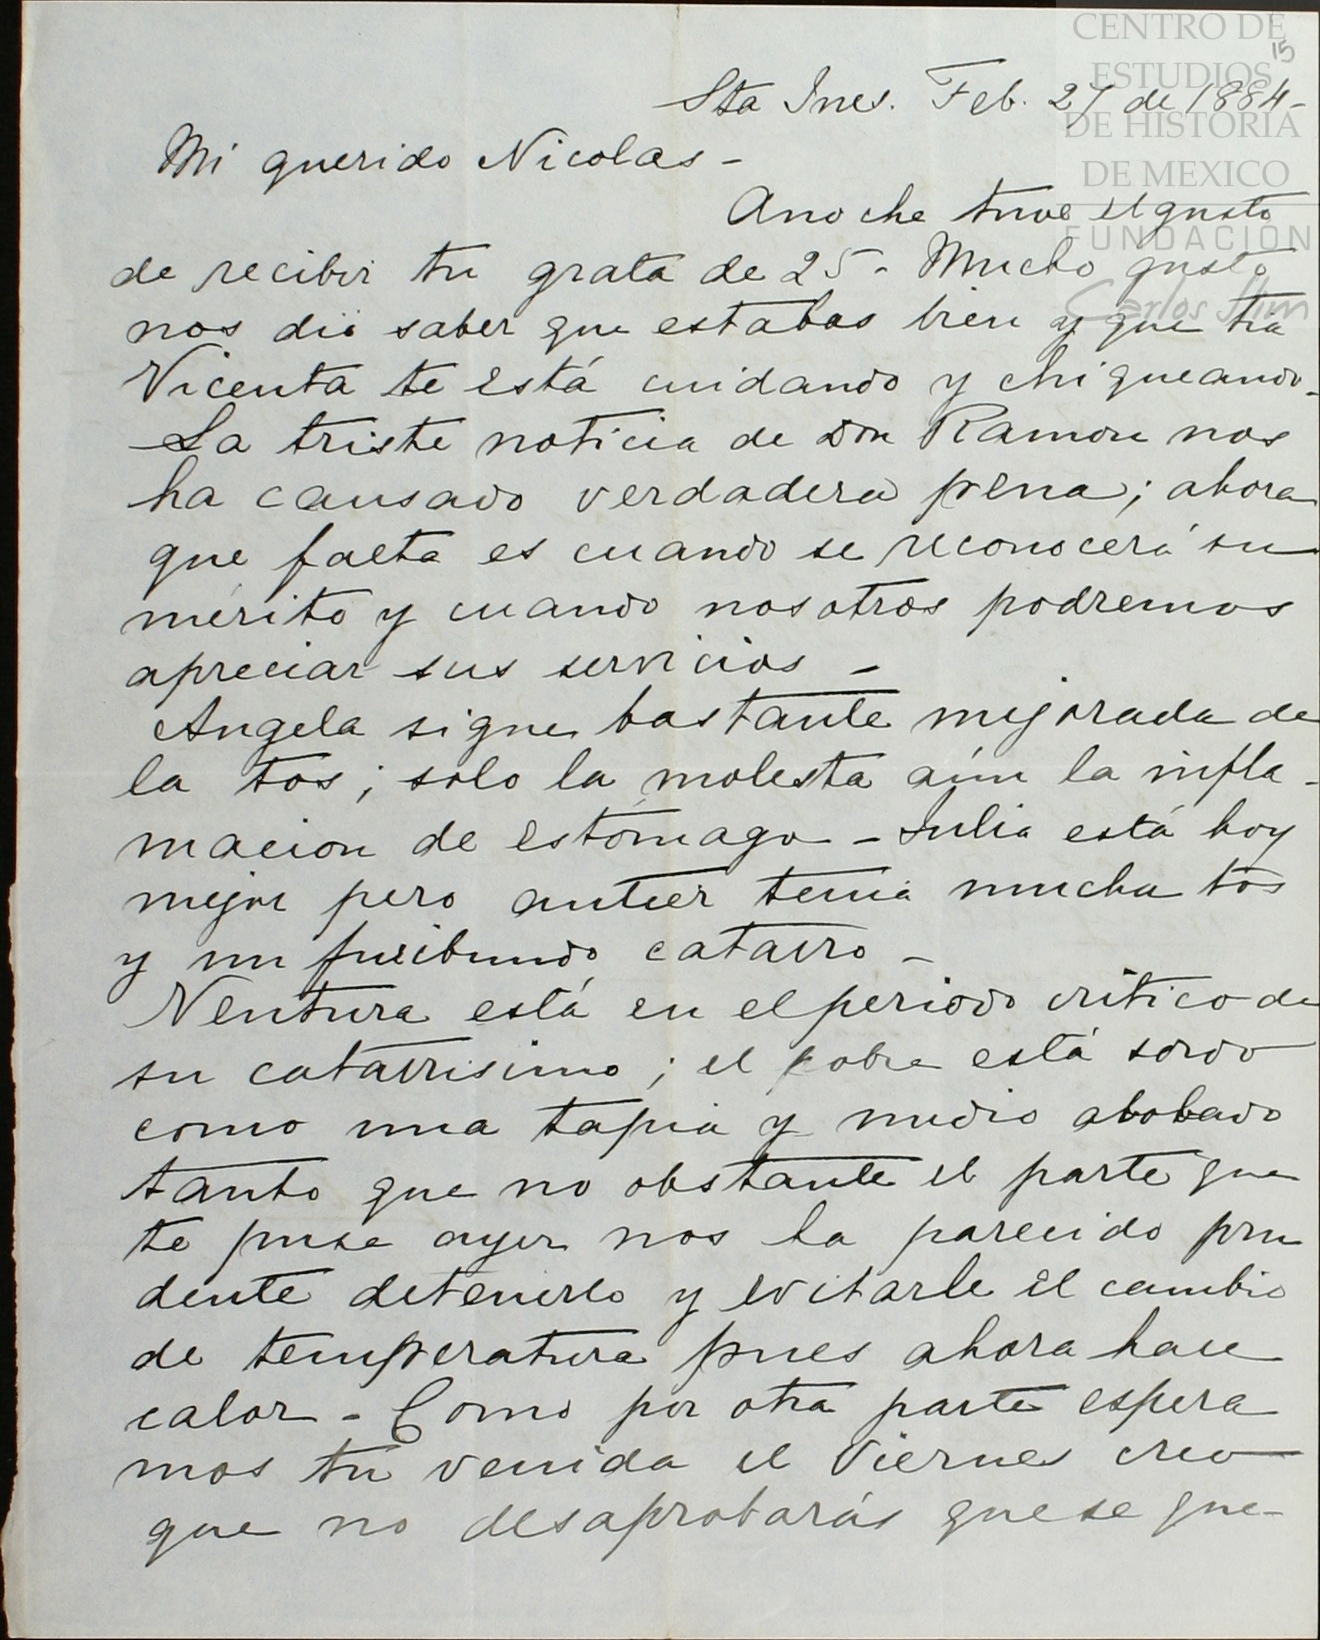 CENTRO DE
ESTUDIOS
DE HISTORIA
DE MEXICO
FUNDACIÓN
Carlos Slim
15
Sta Ines. Feb. 27 de 1884-
Mi querido Nicolas-
Anoche tuve el gusto
de recibir tu grata de 25- Mucho gusto
nos dió saber que estabas bien y que tia
Vicenta te está cuidando y chiqueando-
La triste noticia de Don Ramon nos
ha causado verdadera pena; ahora
que falta es cuando se reconocerá su
mérito y cuando nosotros podremos
apreciar sus servicios-
Angela sigue bastante mejorada de
la tos; solo la molesta aún la infla-
macion de estómago-Julia está hoy
mejor pero antier tenia mucha tos
y un furibundo catarro-
Ventura está en el periodo critico de
su catarrisimo; el pobre está sordo
como una tapia y medio abobado
tanto que no obstante el parte que
te puse ayer nos ha parecido pru
dente detenerlo y evitarle el cambio
de temperatura pues ahora hace
calor-Como por otra parte espera
mos tu venida el Viernes creo
que no desaprobarás que se que-